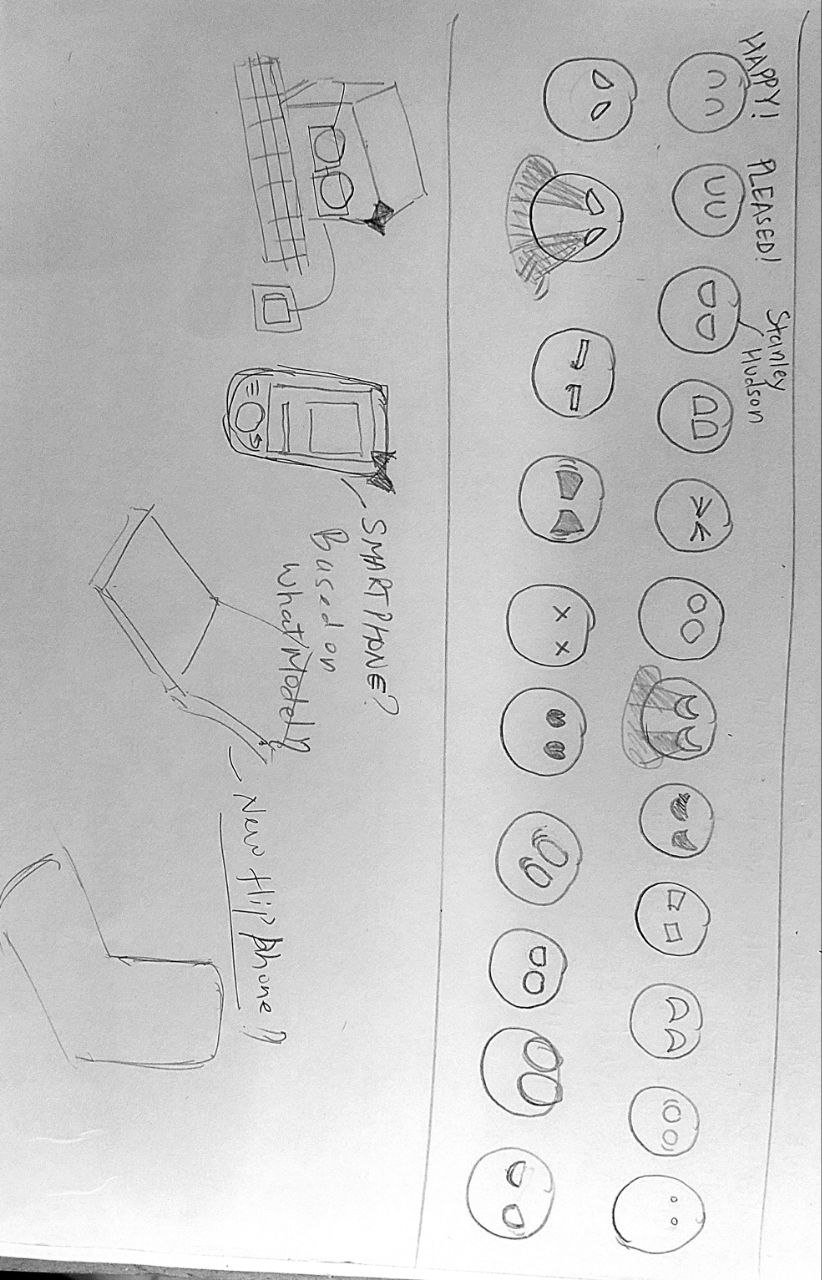 HAPPY!
PLEASED!
Stanley
Hudson
SMARTPHONE?
Based on
what Model?
New flip phone?